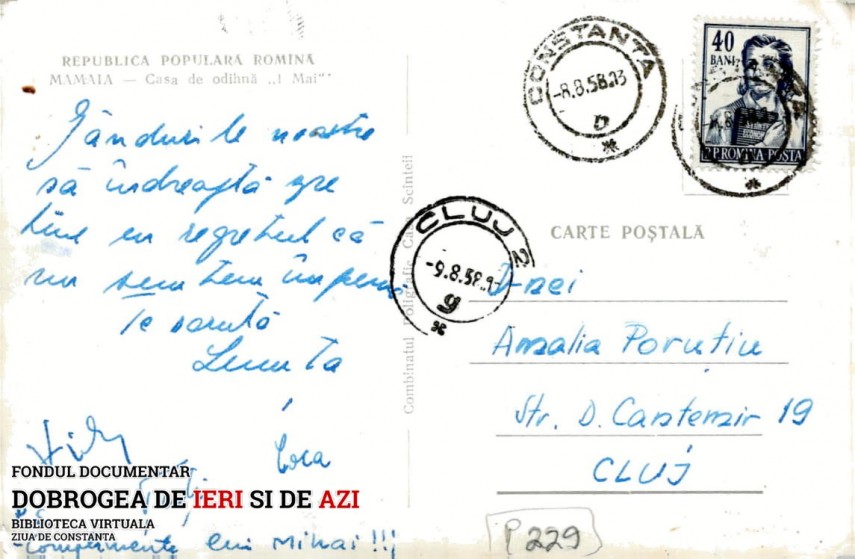 REPUBLICA POPULARĂ ROMÎNĂ
MAMAIA — Casa de odihnă „1 Mai"
Gândurile noastre
să îndreaptă spre
tine cu regretul că
nu suntem împreună
Te sarută
Lenuța
Cora
Complimente lui Mihai !!!
Combinatul Poligrafic Casa Scînteii
CONSTANȚA
-8.8.58.23
b
40
BANI
R.P.ROMINA POSTA
CLUJ 2
-9.8.58.9-
g
CARTE POȘTALĂ
D-nei
Amalia Poruțiu
Str. D. Cantemir 19
CLUJ
P 229
FONDUL DOCUMENTAR
DOBROGEA DE IERI SI DE AZI
BIBLIOTECA VIRTUALA
ZIUA DE CONSTANTA